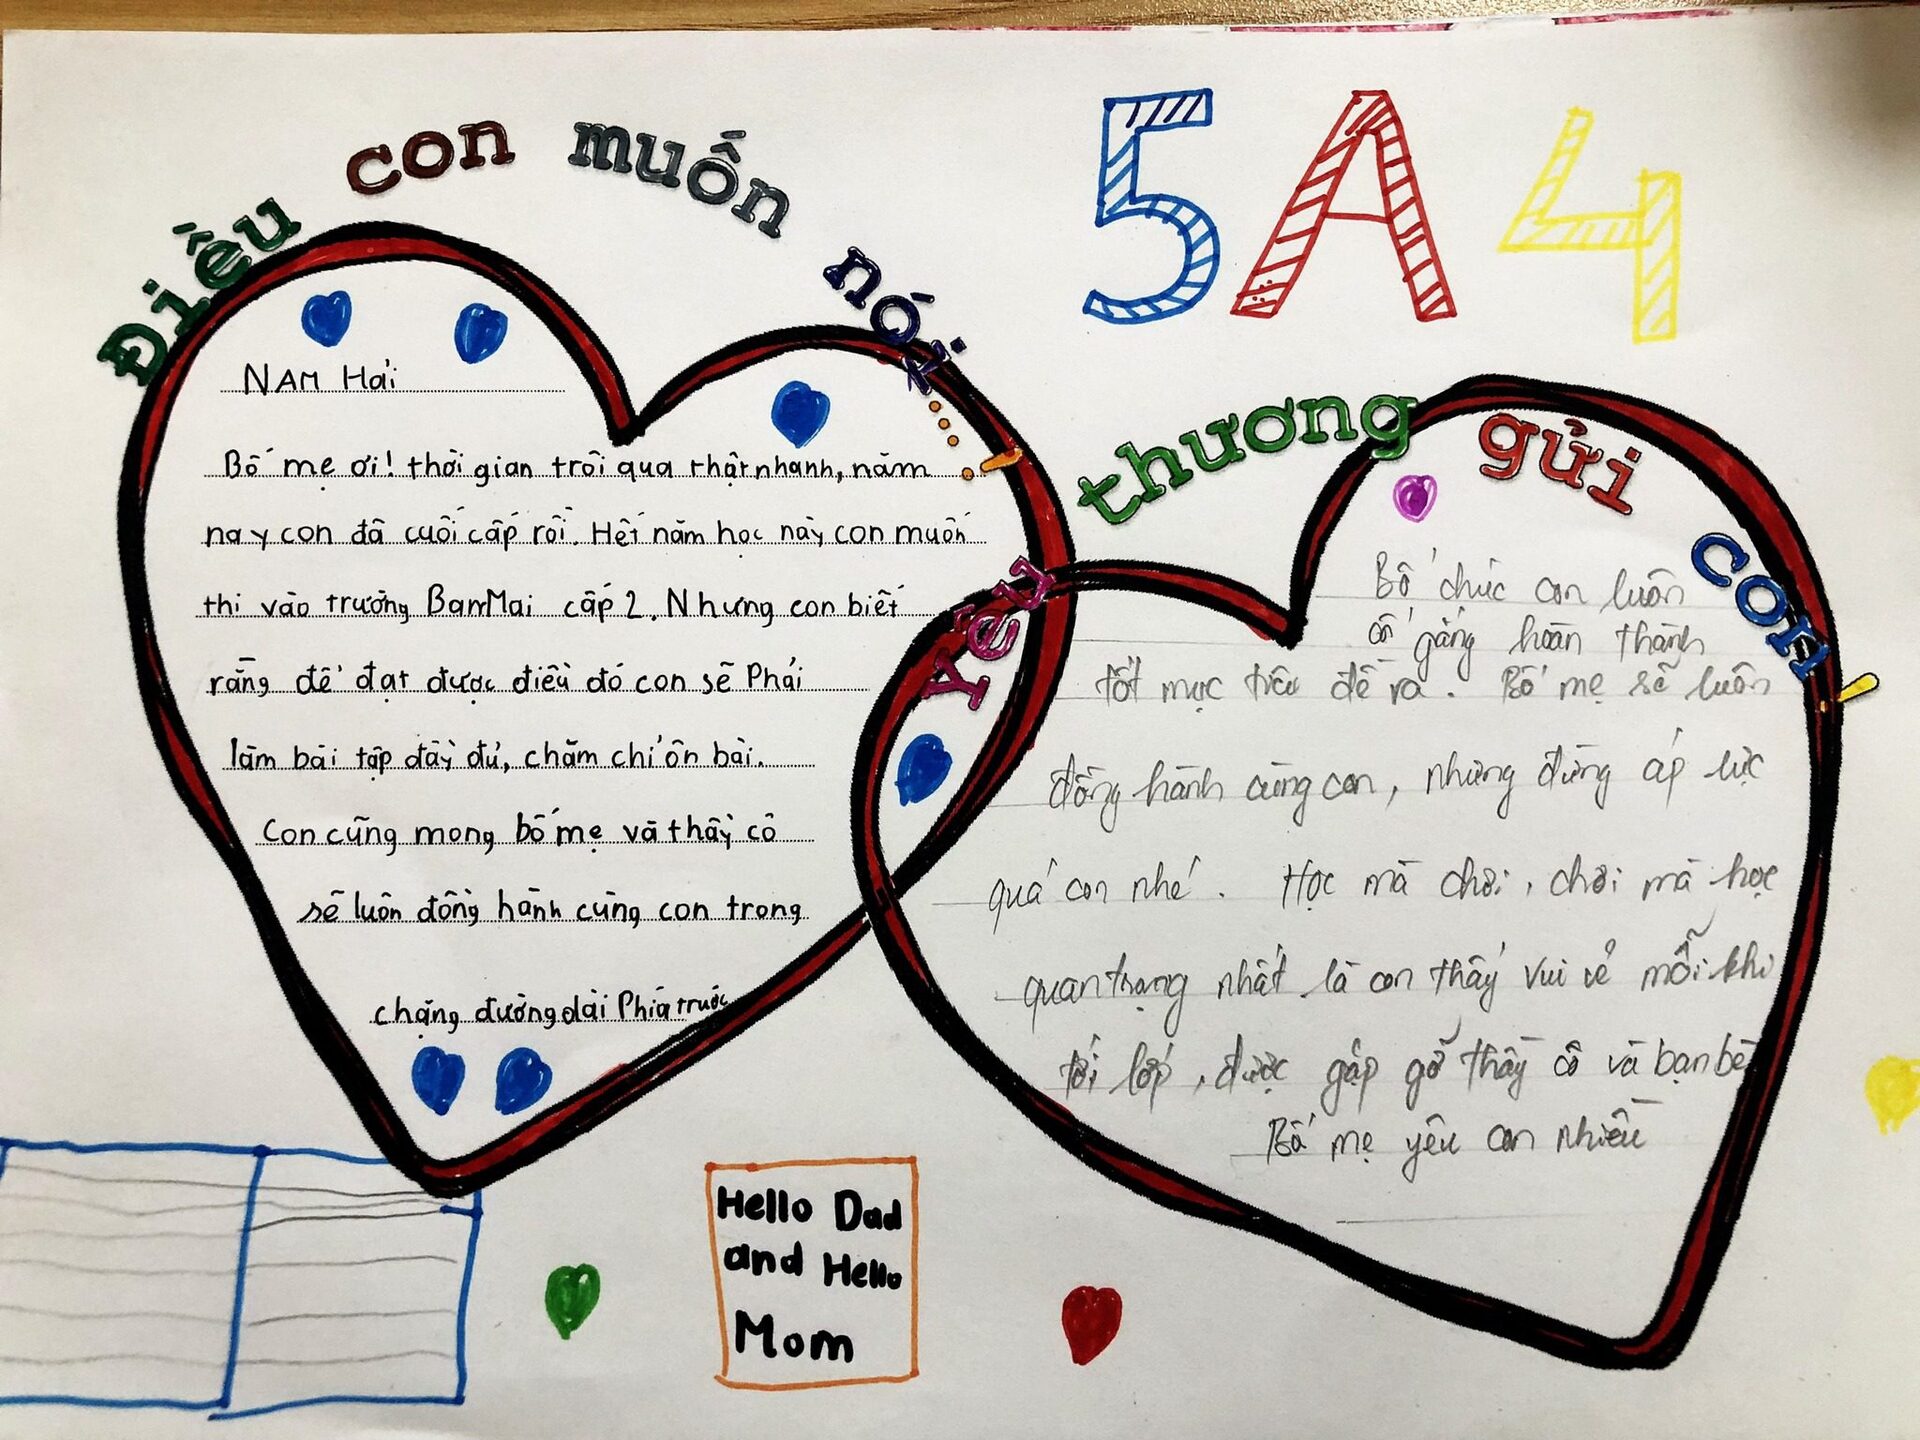 Điều con muốn nói
NAM Hải
Bố mẹ ơi! thời gian trôi qua thật nhanh, năm
nay con đã cuối cấp rồi. Hết năm học này con muốn
thi vào trường BanMai cấp 2. Nhưng con biết
rằng để đạt được điều đó con sẽ Phải
làm bài tập đầy đủ, chăm chỉ ôn bài.
Con cũng mong bố mẹ và thầy cô
sẽ luôn đồng hành cùng con trong
chặng đường dài Phía trước
5A4
Yêu thương gửi con
Bố chúc con luôn
cố gắng hoàn thành
tốt mục tiêu đề ra. Bố mẹ sẽ luôn
đồng hành cùng con, nhưng đừng áp lực
quá con nhé. Học mà chơi, chơi mà học
quan trọng nhất là con thấy vui vẻ mỗi khi
tới lớp, được gặp gỡ thầy cô và bạn bè
Bố mẹ yêu con nhiều
Hello Dad
and Hello
Mom